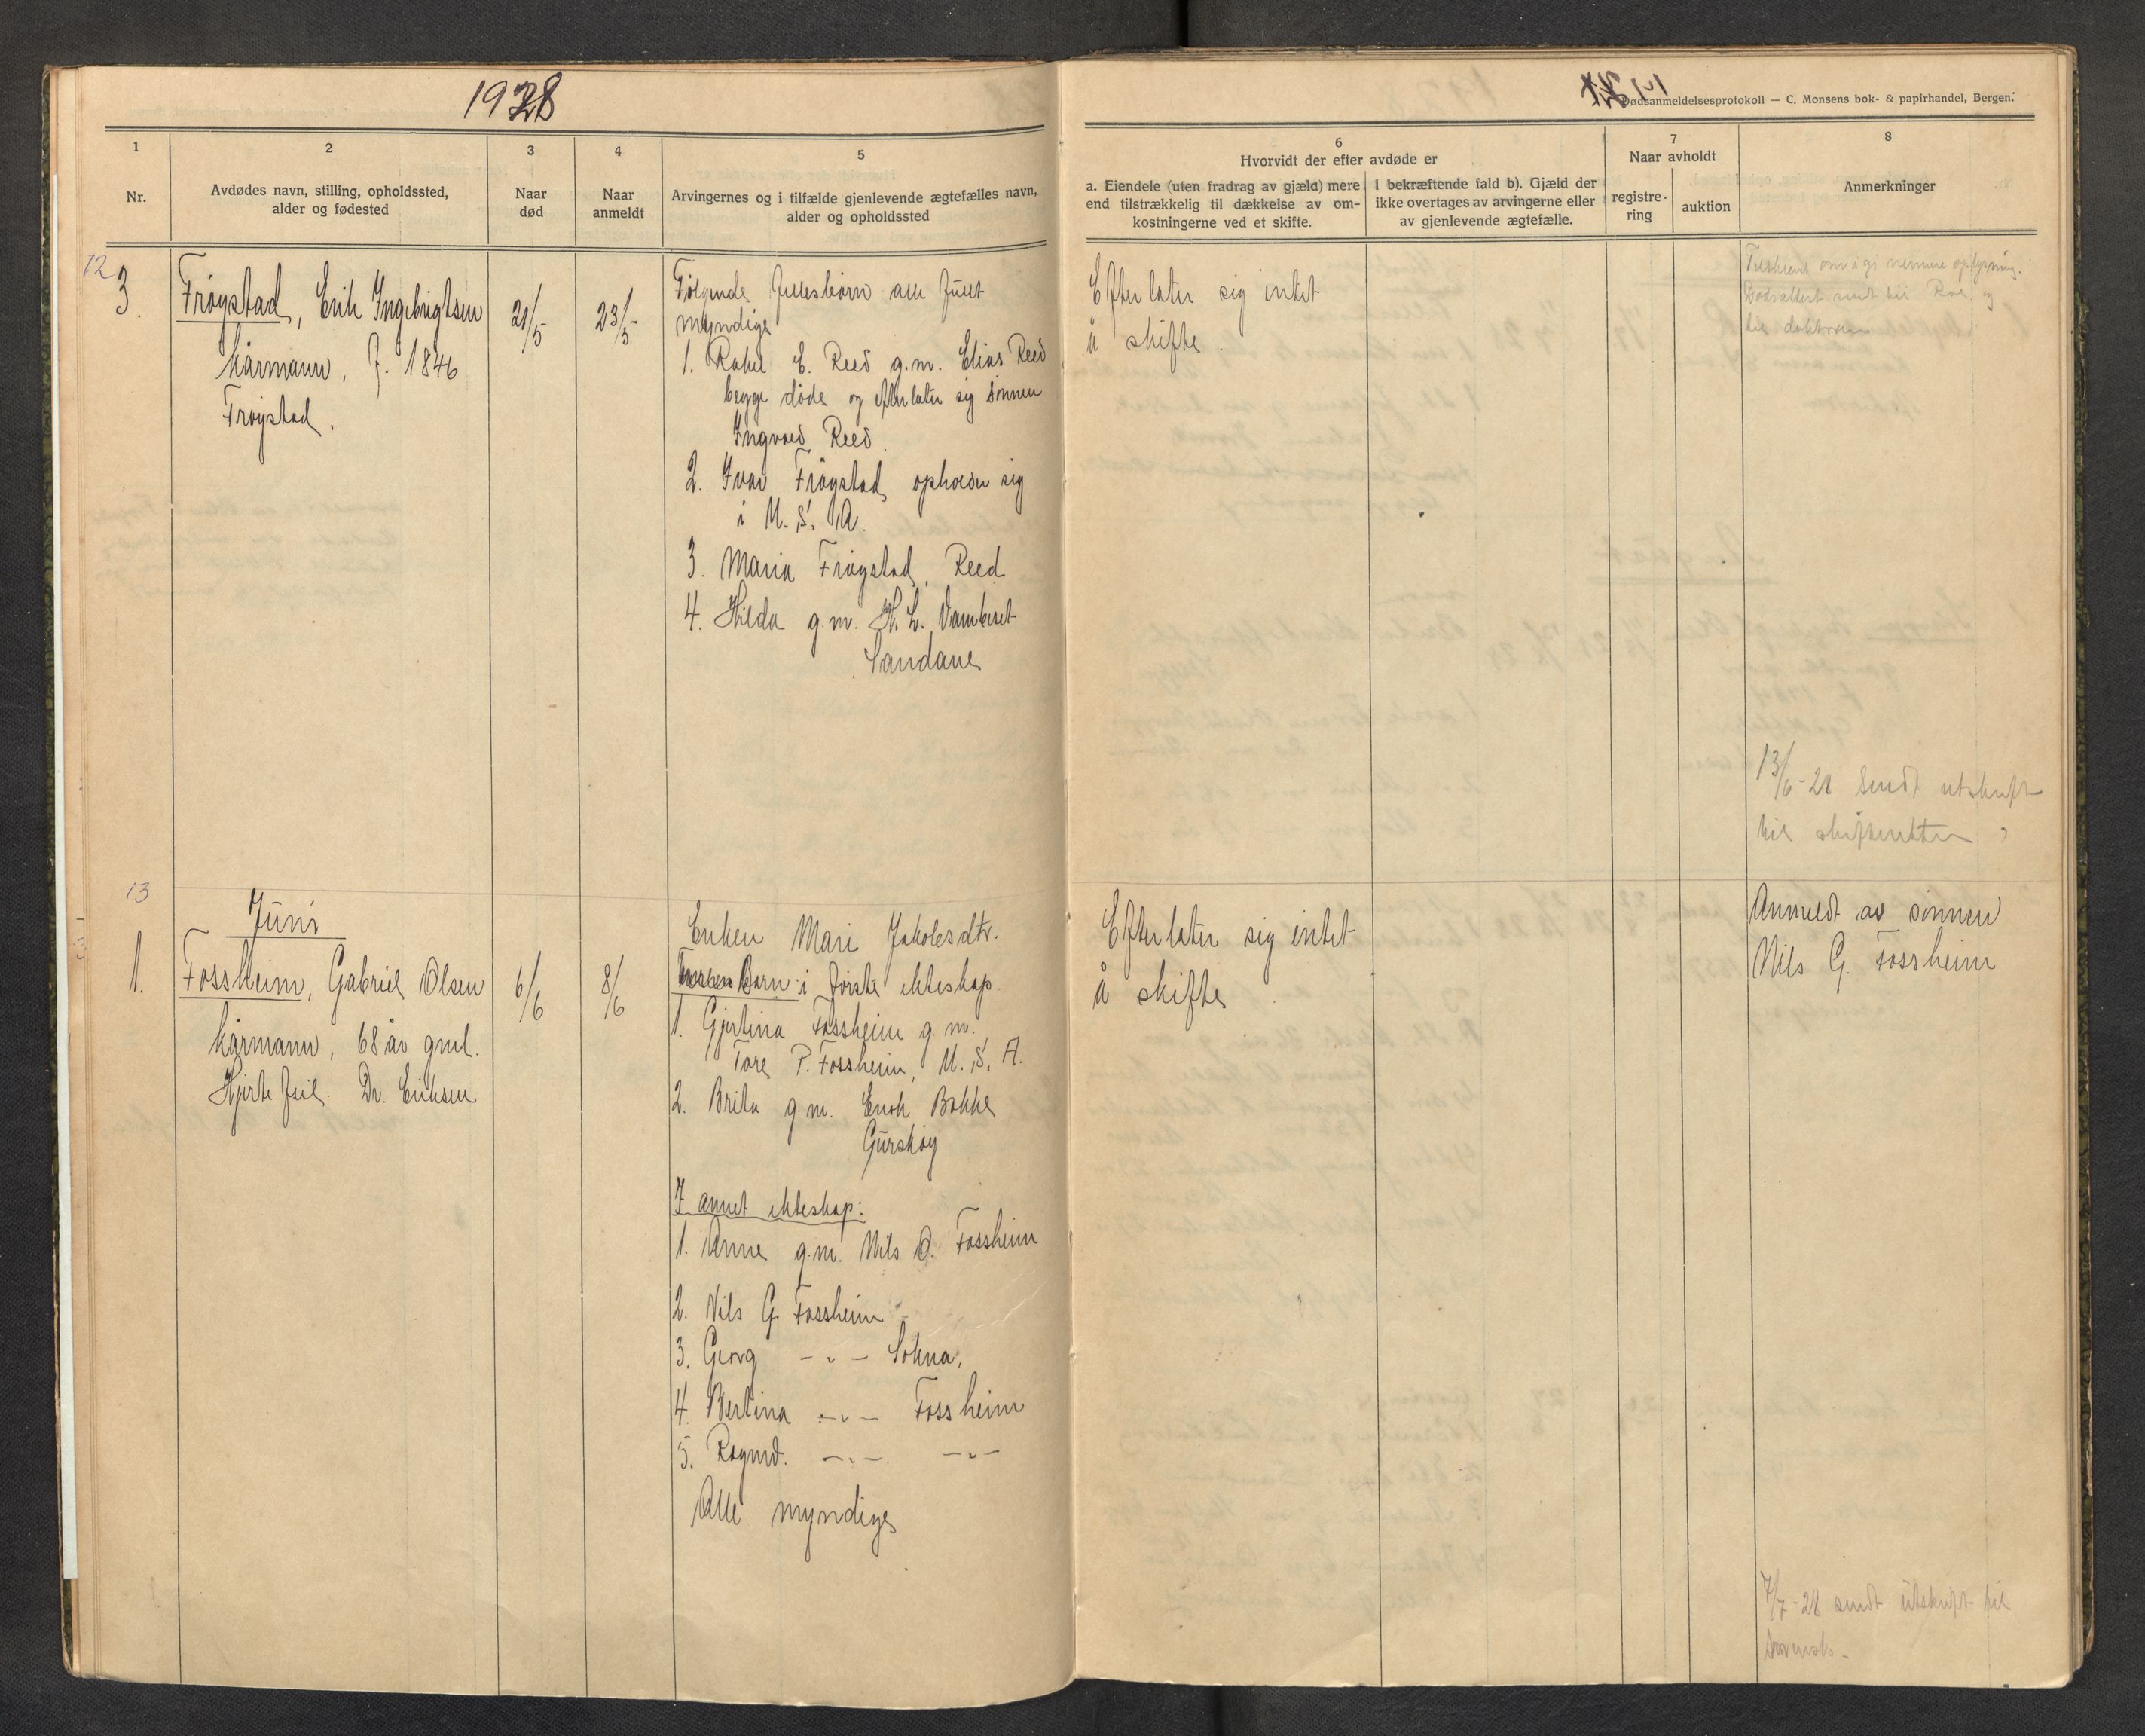 1928
Dødsanmeldelsesprotokoll — C. Monsens bok- & papirhandel, Bergen.
1
2
3
4
5
6
7
8
Nr.
Avdødes navn, stilling, opholdssted,
alder og fødested
Naar
død
Naar
anmeldt
Arvingernes og i tilfælde gjenlevende ægtefælles navn,
alder og opholdssted
Hvorvidt der efter avdøde er
a. Eiendele (uten fradrag av gjæld) mere
end tilstrækkelig til dækkelse av om-
kostningerne ved et skifte.
I bekræftende fald b). Gjæld der
ikke overtages av arvingerne eller
av gjenlevende ægtefælle.
Naar avholdt
registre-
ring
auktion
Anmerkninger
12
3.
Frøystad, Erik Ingebrigtsen
kårmann, f. 1846
Frøystad.
21/5
23/5
Følgende fellesbørn alle fullt
myndige
1. Rakel E. Reed g.m. Elias Reed
begge døde og efterlater sig sønnen
Ingvald Reed
2. Ivar Frøystad opholder sig
i U.S.A.
3. Maria Frøystad, Reed
4. Hilda g.m. H. L. Vambeset
Sandane
Efterlater sig intet
å skifte.
Tilskrevet om å gi nermere oplysning.
Dødsattest sendt til og
til doktoren
13/6-28 Sendt utskrift
til skifteretten
13
Juni
1.
Fossheim, Gabriel Olsen
kårmann, 68 år gml.
Hjertefeil. Dr. Eriksen
6/6
8/6
Enken Mari Jakobsdtr.
Barn i første ekteskap.
1. Gjertina Fossheim g.m.
Tore P. Fossheim, U.S.A.
2. Brita g.m. Enok Bakke
Gurskøy
I annet ekteskap:
1. Anne g.m. Nils O. Fossheim
2. Nils G. Fossheim
3. Georg -"- Sokna,
4. Bertina -"- Fossheim
5. Ragna. -"- -"-
Alle myndige
Efterlater sig intet
å skifte
Anmeldt av sønnen
Nils G. Fossheim
7/7-28 sendt utskrift til